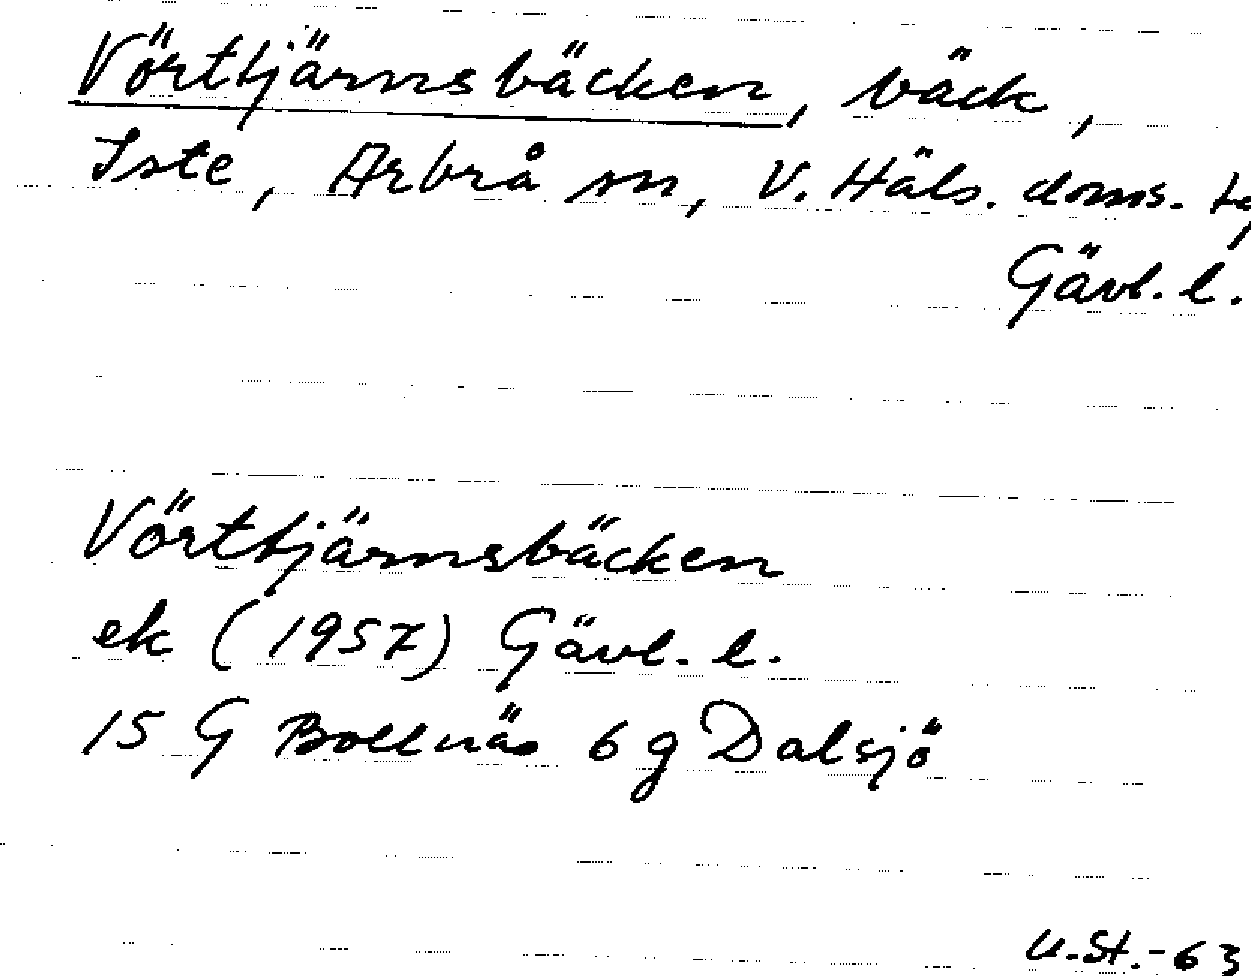 Vörttjärnsbäcken, bäck,
Iste, Arbrå sn, V. Häls. doms.
Gävl. l.
Vörttjärnsbäcken
ek (1957) Gävl. l.
15 G Bollnäs 6 g Dalsjö
U.St.-63